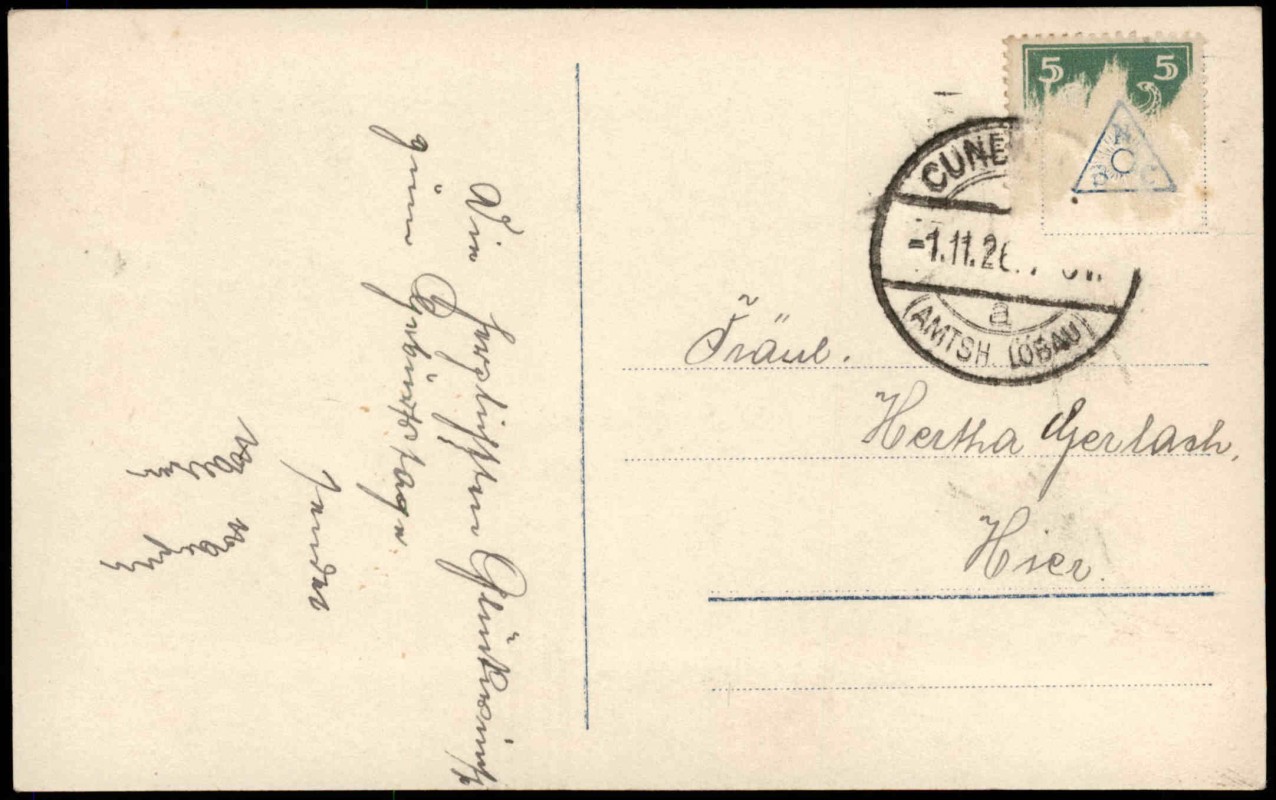 Die herzlichsten Glückwünsche
zum Geburtstage
sendet
5 5
N
D C
CUNE
-1.11.26.
a
(AMTSH. LÖBAU)
Fräul.
Hertha Gerlach,
Hier.